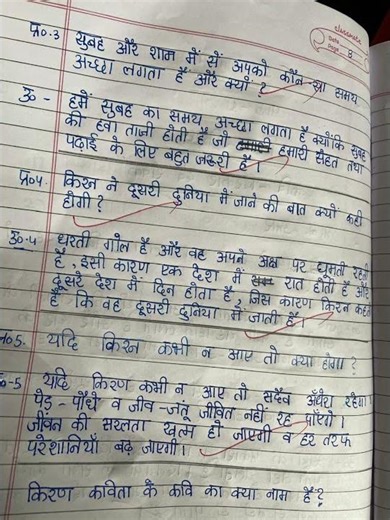 classmate
Date
Page 8
प्र०.3 सुबह और शाम में से आपको कौन सा समय
अच्छा लगता है और क्यों ?
उ - हमें सुबह का समय अच्छा लगता है क्योंकि सुबह
की हवा ताजी होती है जो हमारी सेहत तथा
पढ़ाई के लिए बहुत जरूरी है।
प्र०4. किरन ने दूसरी दुनिया में जाने की बात क्यों कही
होगी ?
उ०.4 धरती गोल है और वह अपने अक्ष पर घूमती रहती
है, इसी कारण एक देश में रात होती है और
दूसरे देश में दिन होता है, जिस कारण किरन कहती
है कि वह दूसरी दुनिया में जाती है।
प्र०5. यदि किरन कभी न आए तो क्या होगा ?
उ०-5 यदि किरण कभी न आए तो सदैव अँधेरा रहेगा।
पेड़-पौधे व जीव-जंतू जीवित नहीं रह पाएँगे।
जीवन की सरलता खत्म हो जाएगी व हर तरफ
परेशानियाँ बढ़ जाएगी।
किरण कविता के कवि का क्या नाम है ?